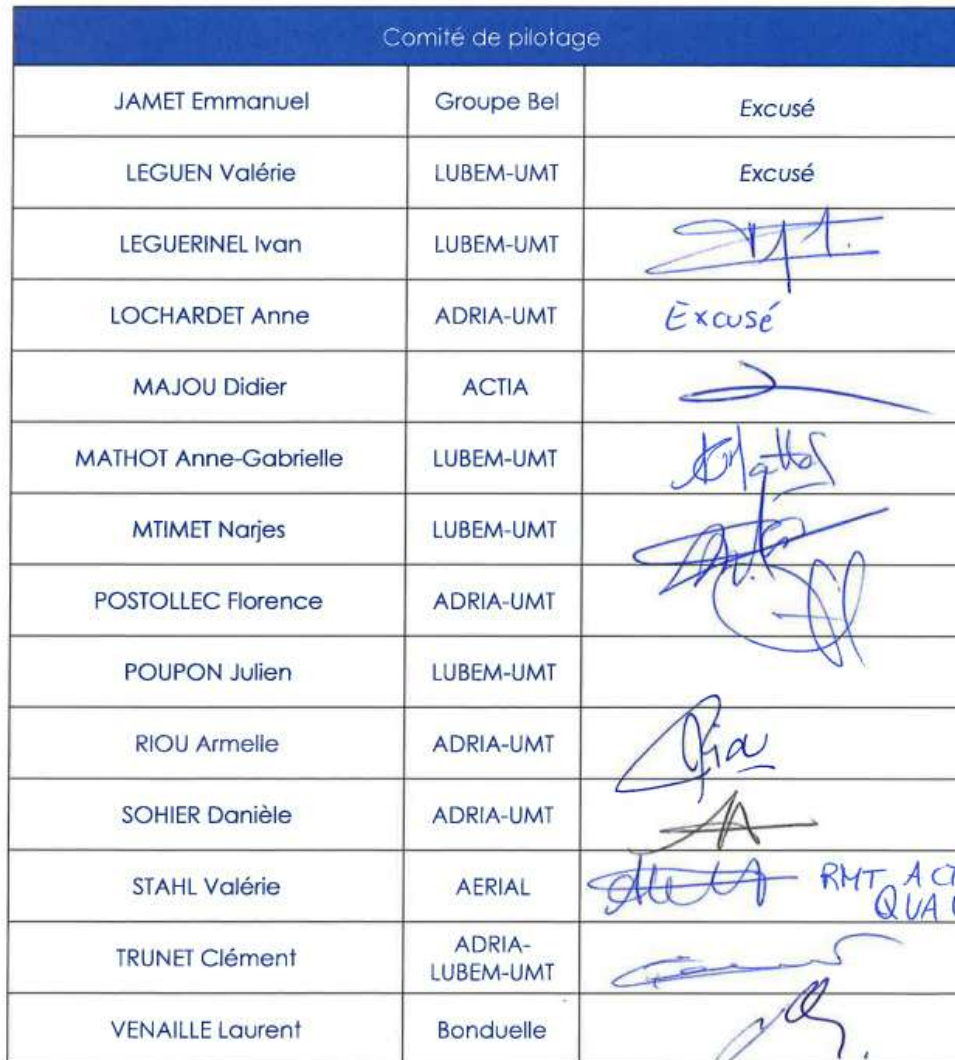 Comité de pilotage
JAMET Emmanuel Groupe Bel Excusé
LEGUEN Valérie LUBEM-UMT Excusé
LEGUERINEL Ivan LUBEM-UMT
LOCHARDET Anne ADRIA-UMT Excusé
MAJOU Didier ACTIA
MATHOT Anne-Gabrielle LUBEM-UMT
MTIMET Narjes LUBEM-UMT
POSTOLLEC Florence ADRIA-UMT
POUPON Julien LUBEM-UMT
RIOU Armelle ADRIA-UMT Riou
SOHIER Danièle ADRIA-UMT
STAHL Valérie AERIAL RMT
TRUNET Clément ADRIA-
LUBEM-UMT
VENAILLE Laurent Bonduelle